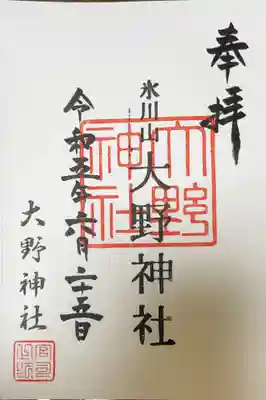 奉拝
氷川山
大野神社
大野神社
令和五年六月二十五日
大野神社